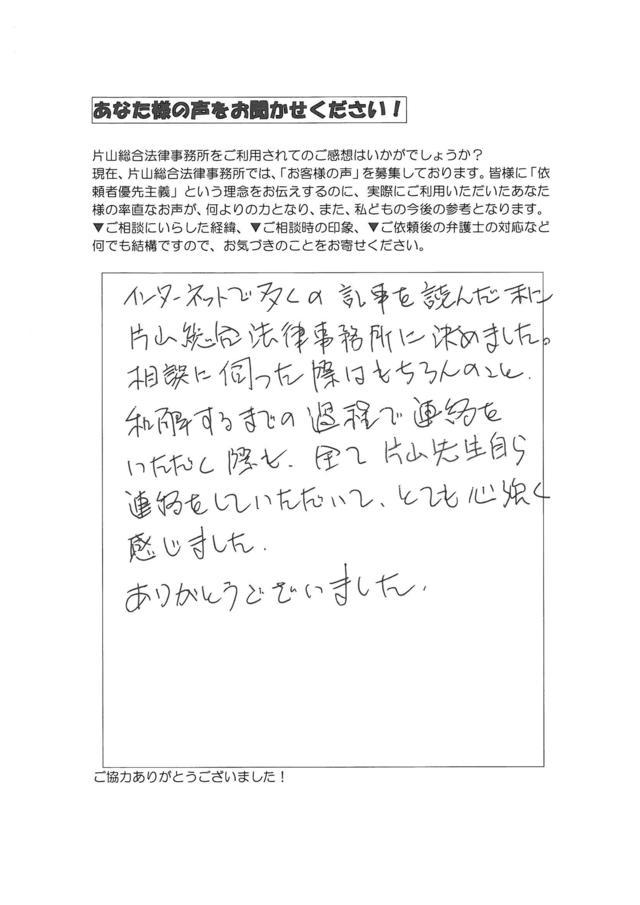 あなた様の声をお聞かせください！
片山総合法律事務所をご利用されてのご感想はいかがでしょうか？
現在、片山総合法律事務所では、「お客様の声」を募集しております。皆様に「依
頼者優先主義」という理念をお伝えするのに、実際にご利用いただいたあなた
様の率直なお声が、何よりの力となり、また、私どもの今後の参考となります。
▼ご相談にいらした経緯、▼ご相談時の印象、▼ご依頼後の弁護士の対応など
何でも結構ですので、お気づきのことをお寄せください。
インターネットで多くの記事を読んだ末に
片山総合法律事務所に決めました。
相談に伺った際はもちろんのこと、
和解するまでの過程で連絡を
いただく際も、全て片山先生自ら
連絡をしていただいて、とても心強く
感じました。
ありがとうございました。
ご協力ありがとうございました！